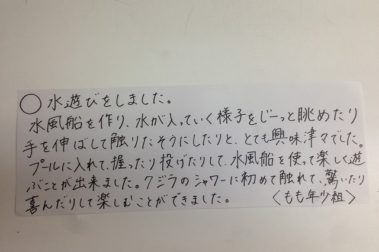 ○水遊びをしました。
水風船を作り、水が入っていく様子をじーっと眺めたり
手を伸ばして触りたそうにしたりと、とても興味津々でした。
プールに入れて、握ったり投げたりして、水風船を使って楽しく遊
ぶことが出来ました。クジラのシャワーに初めて触れて、驚いたり
喜んだりして楽しむことができました。 〈もも年少組〉